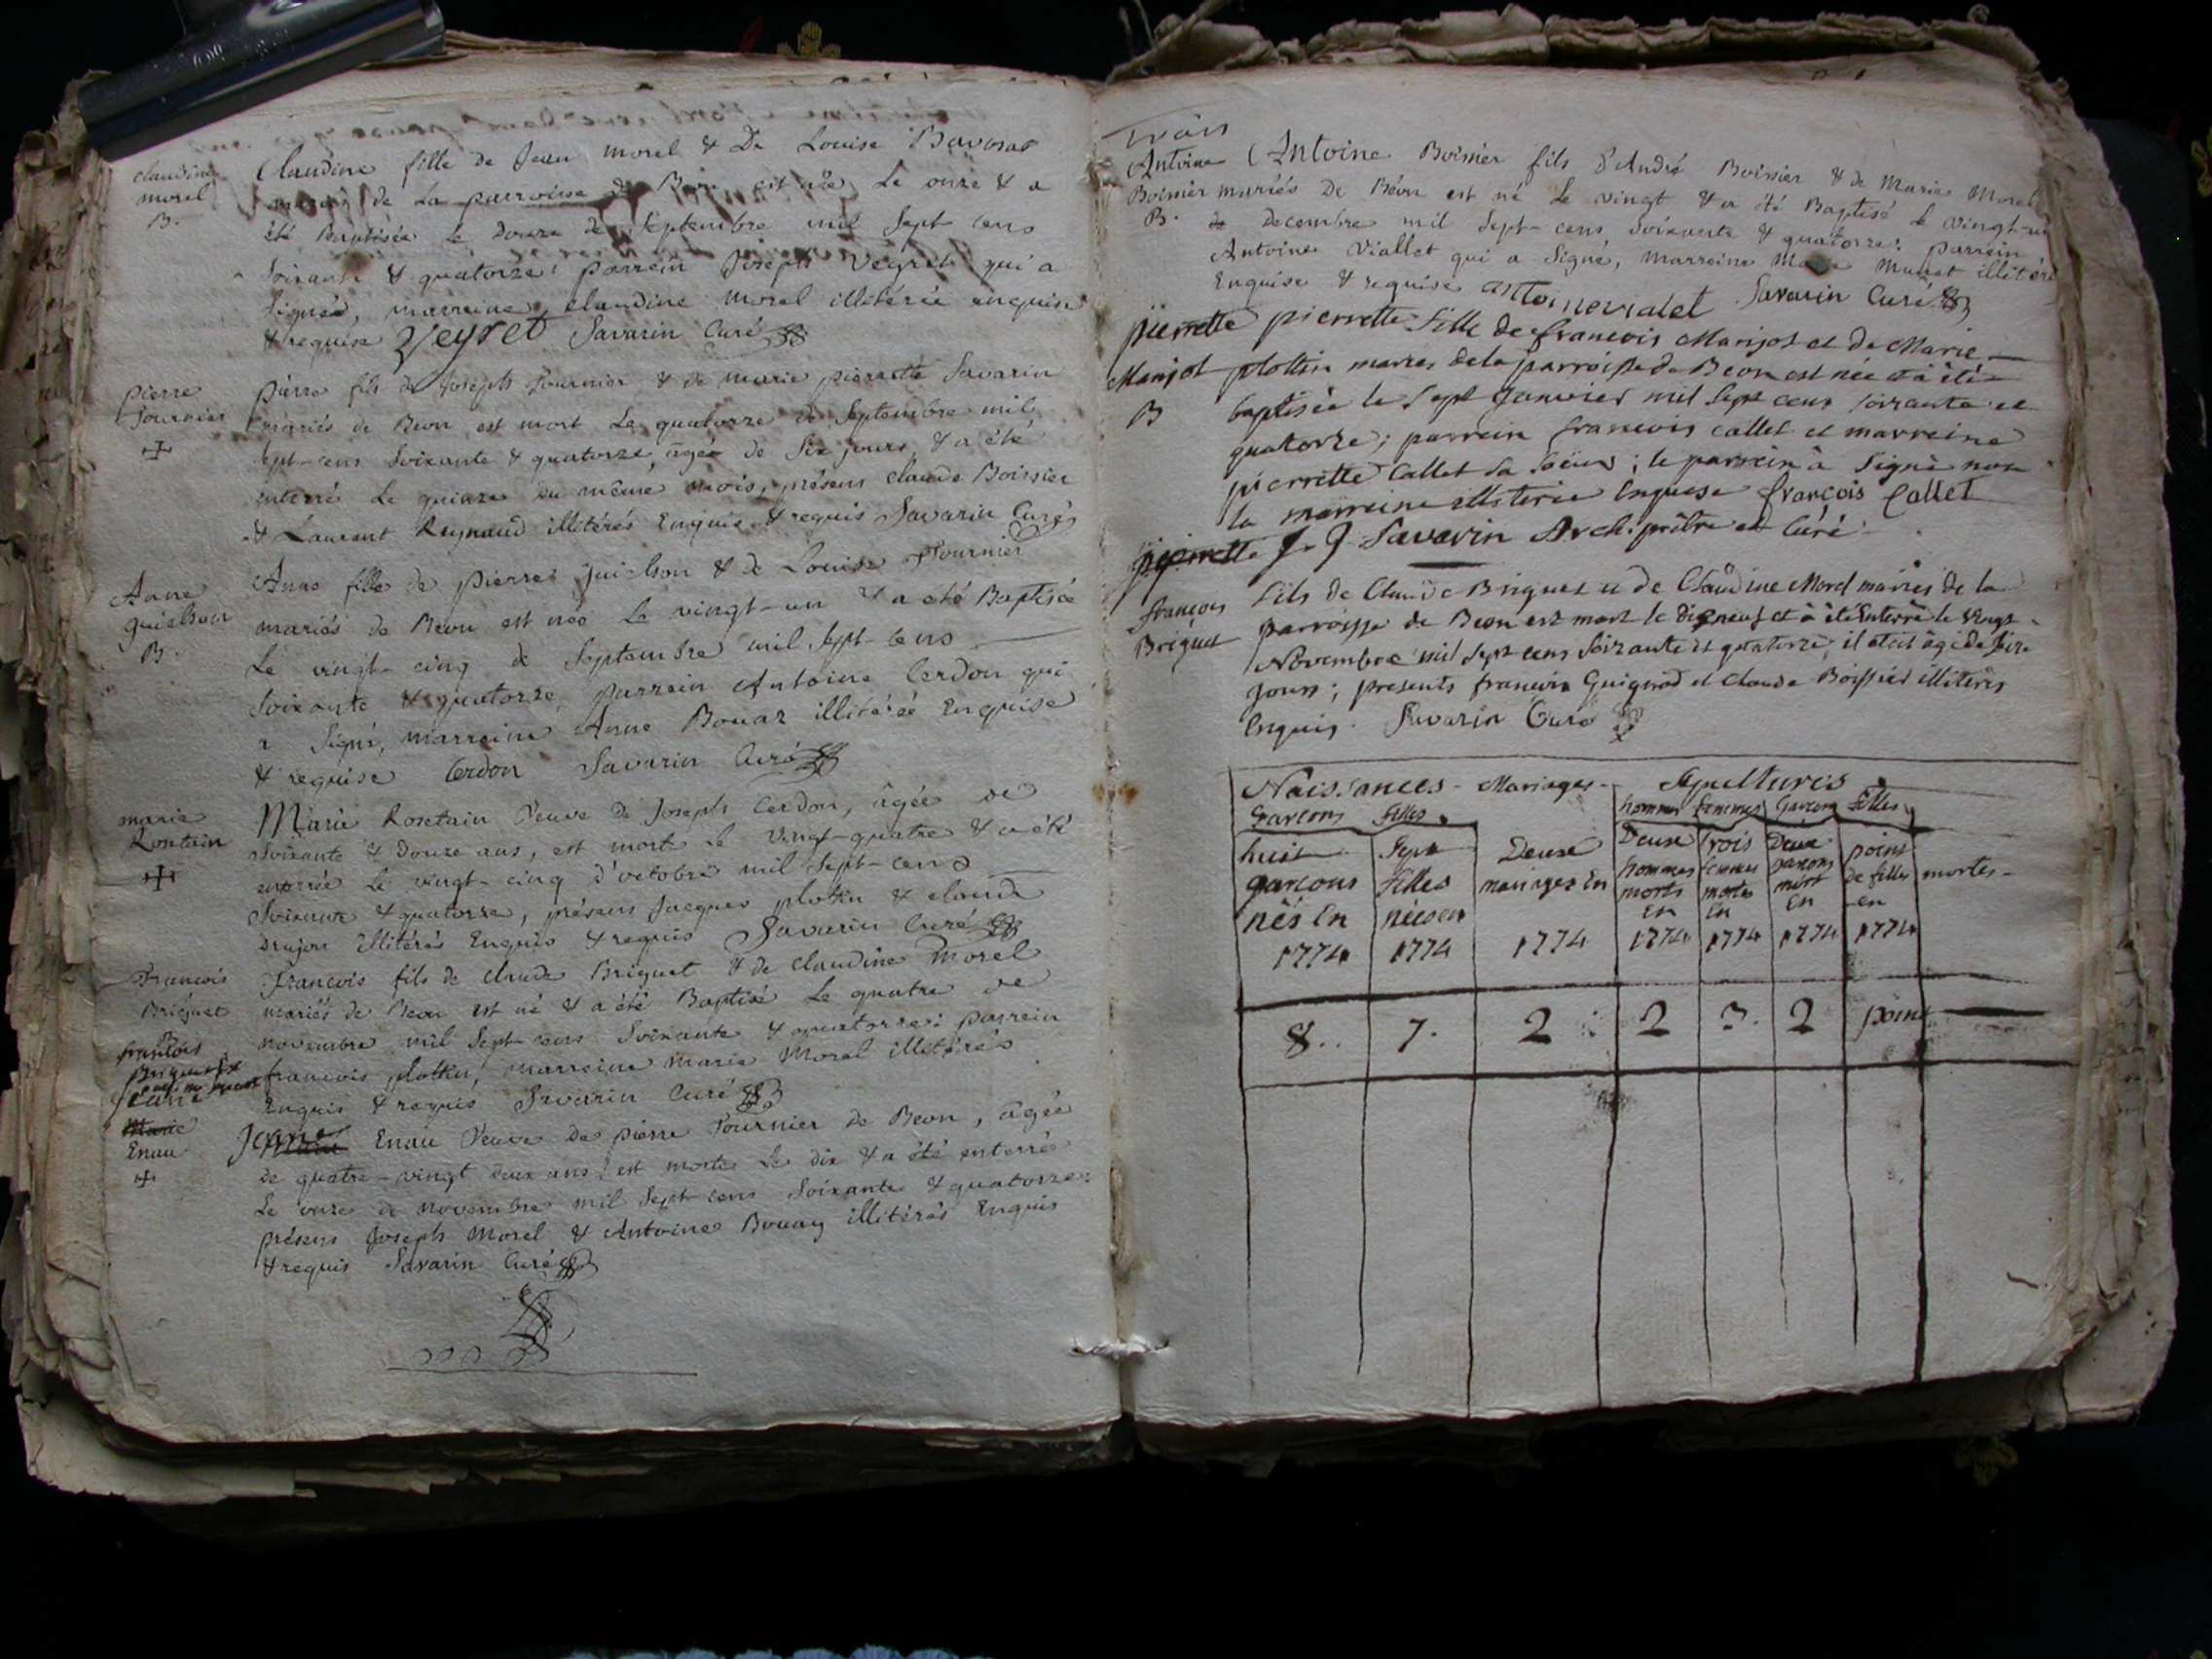 claudine
morel
B.
Claudine fille de Jean morel & De Louise Bavosat
mariés de La parroisse de Beon est née Le onze & a
été Baptisée Le douze de Septembre mil Sept cens
Soixante & quatorze: parrein Joseph Veyret qui a
Signé, marreine claudine morel illitérée enquise
& requise Veyret Savarin Curé
pierre
fournier
pierre fils de Joseph fournier & de marie pierrette Savarin
mariés de Beon est mort Le quatorze de Septembre mil
Sept-cens Soixante & quatorze, âgé de Six jours & a été
enterré Le quinze du même mois, présens claude Boissier
& Laurent Reynaud illitérés Enquis & requis Savarin Curé
Anne
guielson
B.
Anne fille de pierre guielson & de Louise fournier
mariés de Beon est née Le vingt-un & a été Baptisée
Le vingt-cinq de Septembre mil Sept-cens
Soixante & quatorze, parrein Antoine Cerdon qui
a Signé, marreine Anne Bouaz illitérée Enquise
& requise Cerdon Savarin Curé
marie
Rostain
Marie Rostain Veuve de Joseph Cerdon, âgée de
Soixante & Douze ans, est morte Le vingt-quatre & a été
enterrée Le vingt-cinq d'octobre mil Sept-cens
Soixante & quatorze, présens Jacques plottin & claude
Drujon illitérés Enquis & requis Savarin Curé
François
Briquet
B
françois fils de claude Briquet & de claudine morel
mariés de Beon est né & a été Baptisé Le quatre de
novembre mil Sept-cens Soixante & quatorze: parrein
françois plottin, marreine marie Morel illitérés
Enquis & requis Savarin Curé
françois
Briquet
Jeanne
Marie
Enau
Jeanne Enau Veuve de pierre fournier de Beon, âgée
de quatre-vingt deux ans, est morte Le dix & a été enterrée
Le onze de novembre mil Sept-cens Soixante & quatorze:
présens Joseph Morel & Antoine Bouaz illitérés Enquis
& requis Savarin Curé
trois
Antoine
Boissier
B.
Antoine Boissier fils d'André Boissier & de Marie Morel
mariés De Béon est né Le vingt & a été Baptisé Le vingt-un
de Decembre mil Sept-cens Soixante & quatorze: parrein
Antoine Viallet qui a Signé, marreine Marie Munet illitérée
Enquise & requise antoine vialet Savarin Curé
pierrette
Marijot
B
pierrette fille de francois Marijot et de Marie
plottin maries de la parroisse de Beon est née et à été
baptisée le Sept Janvier mil Sept cens soixante et
quatorze; parrein francois callet et marreine
pierrette Callet Sa Soeur; le parrein à Signé non
la marreine illiterée Enquise françois Callet
pierrette J. J. Savarin Arch. prêtre et Curé
françois
Briquet
fils de Claude Briquet et de Claudine Morel mariés de la
parroisse de Beon est mort le dixneuf et à été Enterré le vingt
Novembre mil Sept cens Soixante et quatorze, il etait âgé de Seize
jours; presents francois Guignod et Claude Boissier illiterés
Enquis. Savarin Curé
Naissances - Mariages - Sepultures
Garcons filles hommes femmes Garcons filles
huit garcons nés En 1774
Sept filles nées en 1774
Deux mariages En 1774
Deux hommes morts En 1774
trois femmes mortes En 1774
Deux garcons mort En 1774
point de filles en 1774
mortes
8. 7. 2 2 3. 2 point